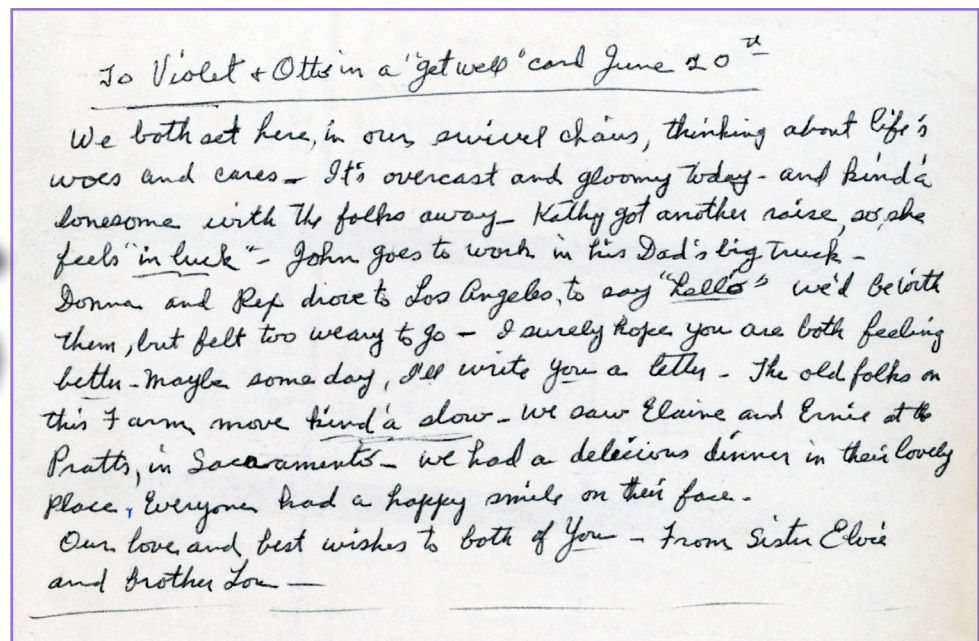 To Violet + Otto in a "get well" card June 20th
We both set here, in our swivel chairs, thinking about life's
woes and cares - It's overcast and gloomy today - and kind'a
lonesome with the folks away - Kathy got another raise, so, she
feels "in luck" - John goes to work in his Dad's big truck -
Donna and Rex drove to Los Angeles, to say "hello" we'd be with
them, but felt too weary to go - I surely hope you are both feeling
better - maybe some day, I'll write you a letter - The old folks on
this Farm, move kind'a slow - we saw Elaine and Ernie at the
Pratts, in Sacaramento - we had a delicious dinner in their lovely
place, Everyone had a happy smile on their face -
Our love and best wishes to both of You - From Sister Elvie
and Brother Lou -